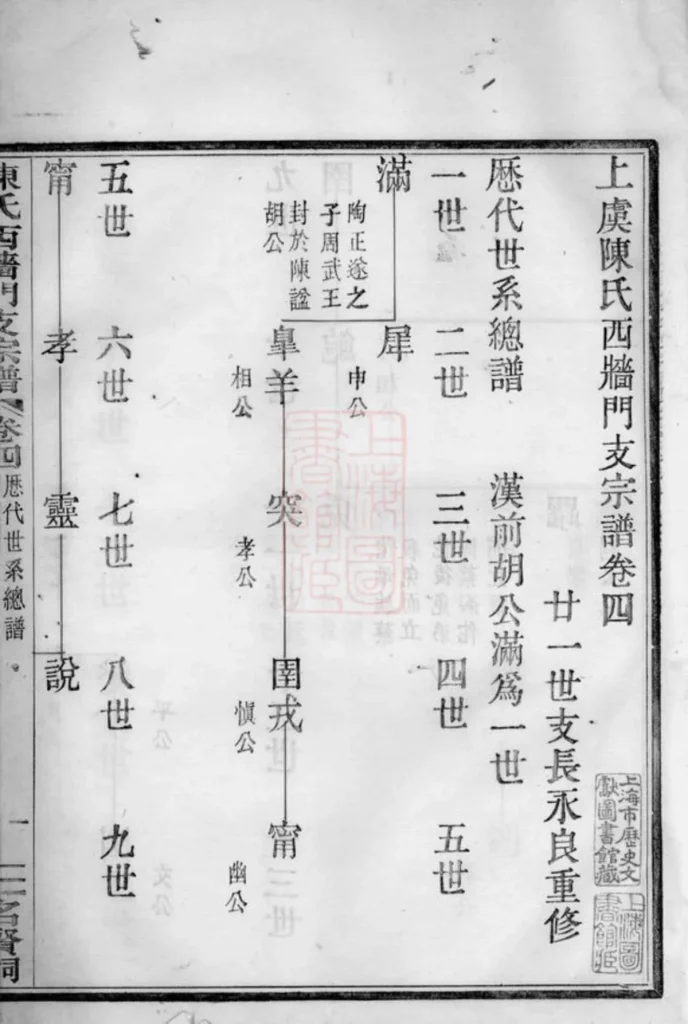 上虞陳氏西牆門支宗譜卷四
廿一世支長永良重修
歷代世系總譜　漢前胡公滿爲一世
一世　二世　三世　四世　五世
滿
陶正遂之
子周武王
封於陳諡
胡公
犀
申公
皐羊
相公
突
孝公
圉戎
慎公
甯
幽公
五世　六世　七世　八世　九世
甯　孝　靈　說
陳氏西牆門支宗譜
卷四
歷代世系總譜
一
名賢祠
上海市歷史文
獻圖書館藏
上海圖
書館藏
上海圖
書館藏